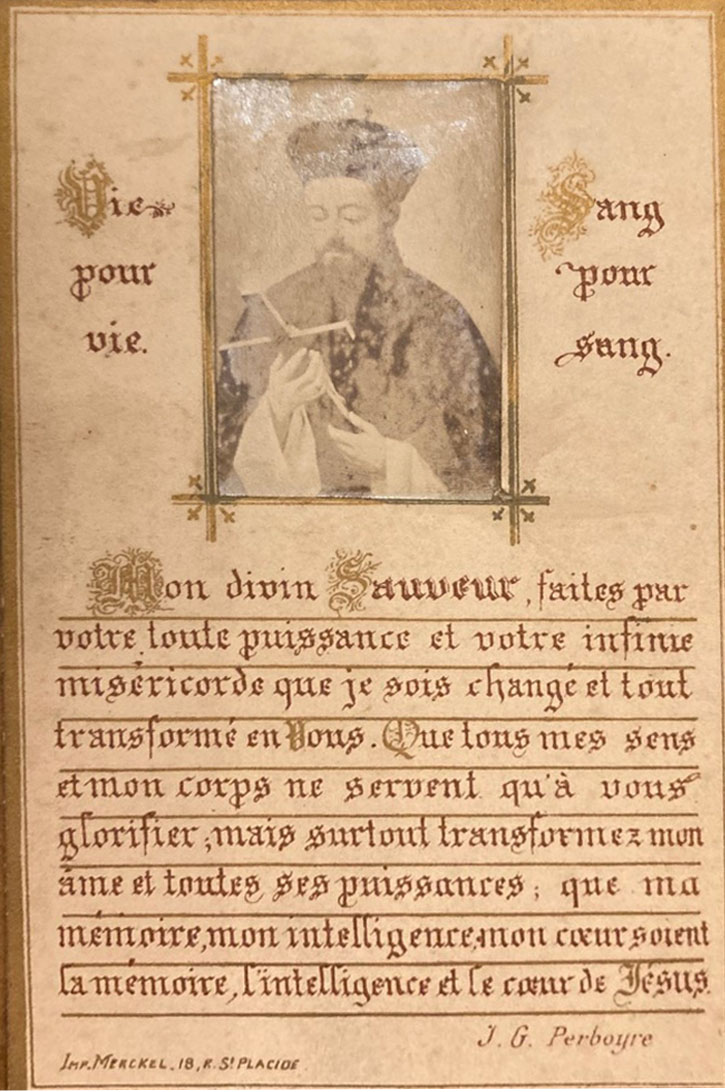 Vie
pour
vie.
Sang
pour
sang.
Mon divin Sauveur, faites par
votre toute puissance et votre infinie
miséricorde que je sois changé et tout
transformé en Vous. Que tous mes sens
et mon corps ne servent qu'à vous
glorifier; mais surtout transformez mon
âme et toutes ses puissances; que ma
mémoire, mon intelligence, mon cœur soient
la mémoire, l'intelligence et le cœur de Jésus.
J. G. Perboyre
IMP. MERCKEL. 18, R. St PLACIDE